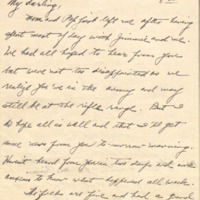 My darling;
Mom and Pop just left us after having
spent most of day with Jimmie and us.
We had all hoped to hear from you
but were not too disappointed as we
realize you're in the army and may
still be at the rifle range. But I
do hope all is well and that I'll get
some news from you to-morrow morning.
Haven't heard from you in two days and
anxious to know what happened all week.
The folks are fine and had a good